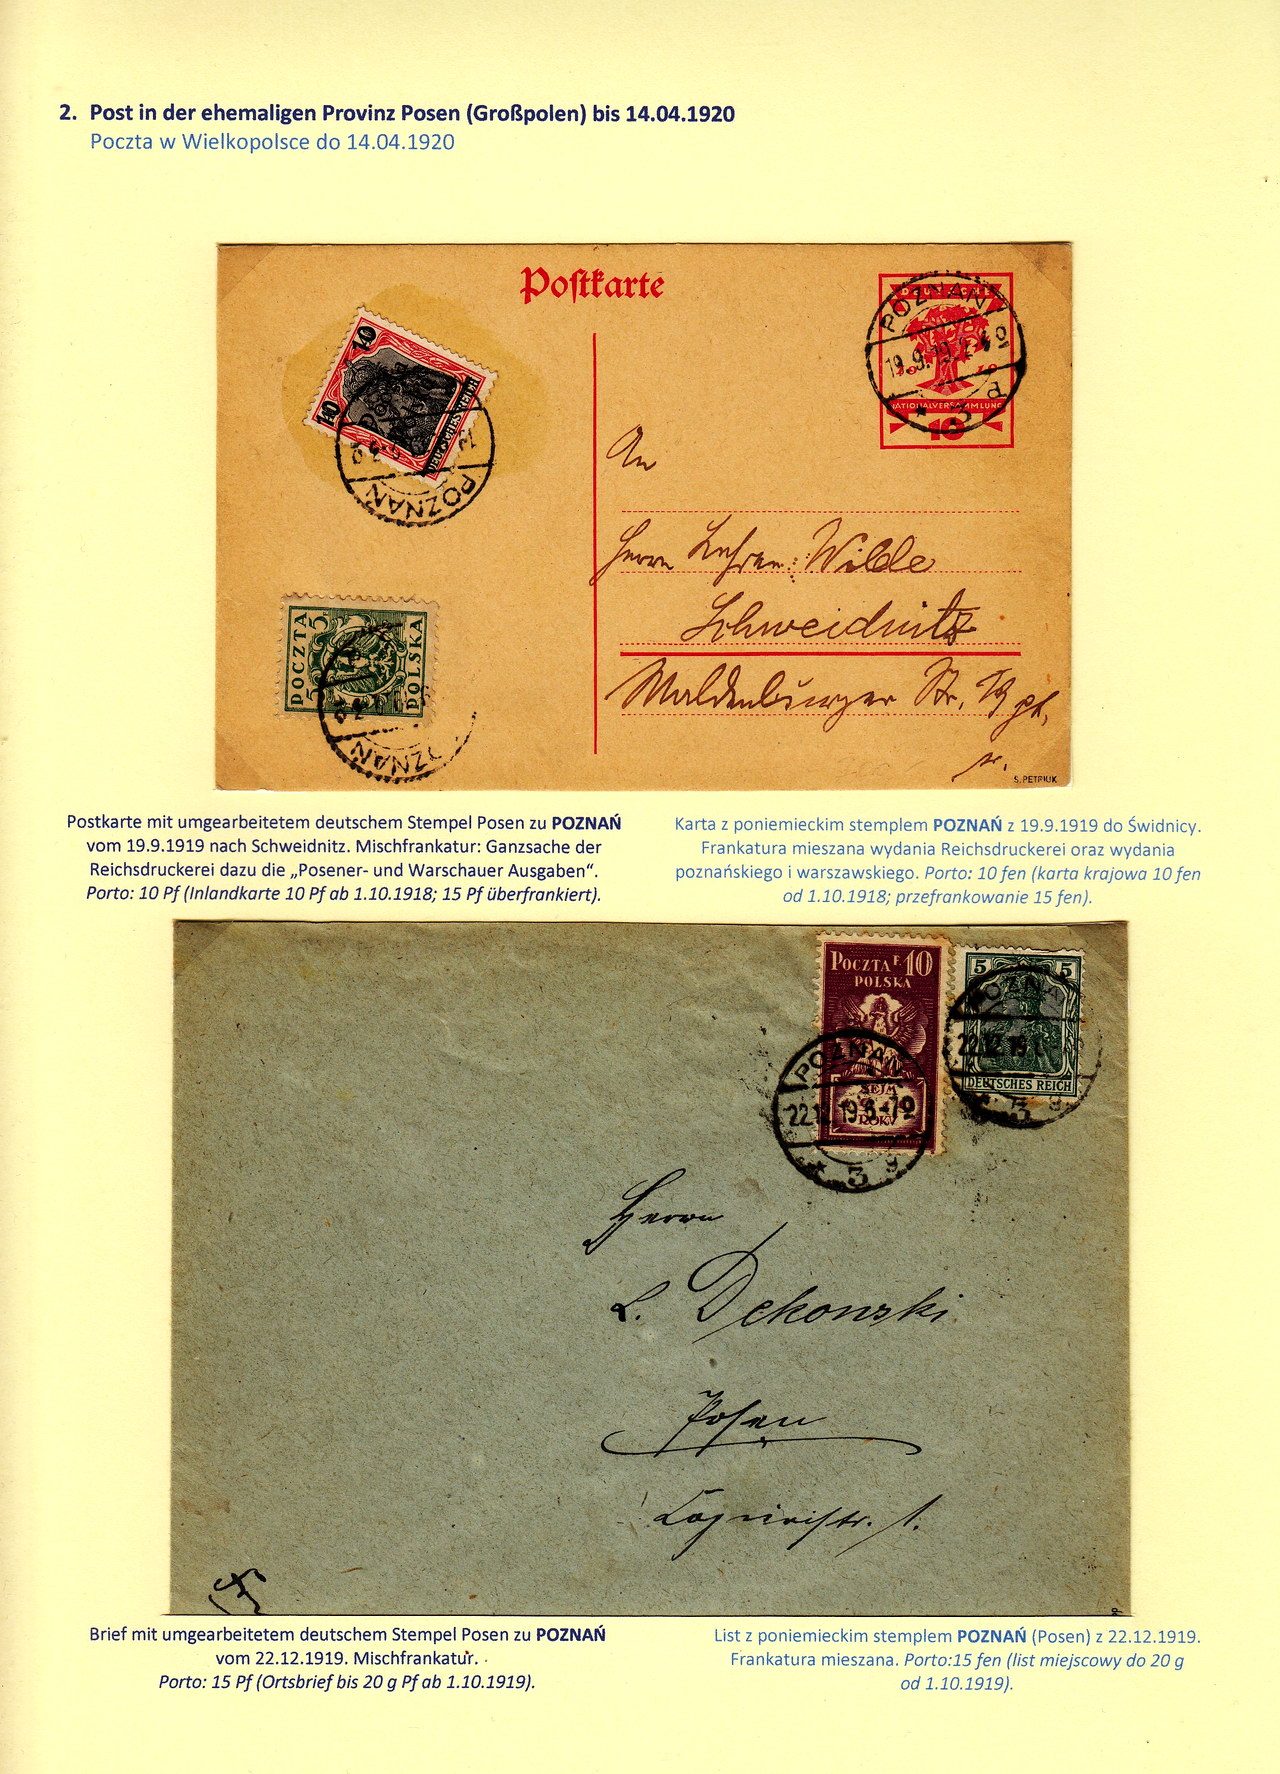 2. Post in der ehemaligen Provinz Posen (Großpolen) bis 14.04.1920
Poczta w Wielkopolsce do 14.04.1920
Postkarte
DEUTSCHE
NATIONALVERSAMMLUNG
10
POZNAŃ
19.9.19.2-3
* 3 d
10
10
DEUTSCHES REICH
POZNAŃ
An
Herrn Lehrer Wilde
Schweidnitz
Str.
POCZTA
5
5
POLSKA
POZNAŃ
S. PETRIUK
Postkarte mit umgearbeitetem deutschem Stempel Posen zu POZNAŃ
vom 19.9.1919 nach Schweidnitz. Mischfrankatur: Ganzsache der
Reichsdruckerei dazu die „Posener- und Warschauer Ausgaben“.
Porto: 10 Pf (Inlandkarte 10 Pf ab 1.10.1918; 15 Pf überfrankiert).
Karta z poniemieckim stemplem POZNAŃ z 19.9.1919 do Świdnicy.
Frankatura mieszana wydania Reichsdruckerei oraz wydania
poznańskiego i warszawskiego. Porto: 10 fen (karta krajowa 10 fen
od 1.10.1918; przefrankowanie 15 fen).
POCZTA F. 10
POLSKA
SEJM
ROKU
5 5
DEUTSCHES REICH
POZNAŃ
22.12.19.6-7
* 3 g
POZNAŃ
22.12.19
* 3 g
Herrn
L. Dekonski
Posen
Brief mit umgearbeitetem deutschem Stempel Posen zu POZNAŃ
vom 22.12.1919. Mischfrankatur.
Porto: 15 Pf (Ortsbrief bis 20 g Pf ab 1.10.1919).
List z poniemieckim stemplem POZNAŃ (Posen) z 22.12.1919.
Frankatura mieszana. Porto:15 fen (list miejscowy do 20 g
od 1.10.1919).